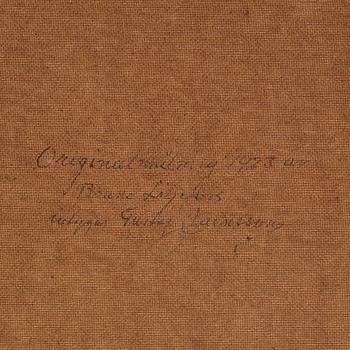 Originalmålning 1923 av
Bruno Liljefors
intygar Gustaf